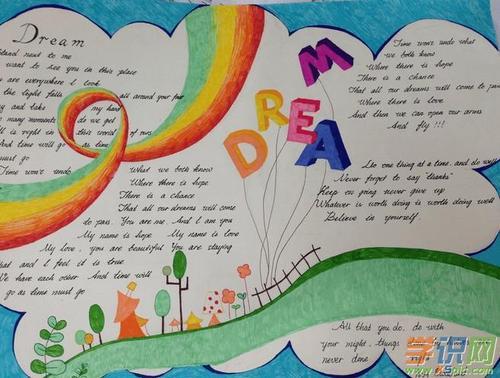 Dream
Stand next to me
want to see you in this place
are everywhere I look
the light falls all around your
and take my hand
so many moments do we get
is right in this world of ours
And time will go as time
must go
Time won't undo What we both know
Where there is hope
There is a chance
That all our dreams will come
to pass. You are me. And I am you
My name is hope My name is love
My love, you are beautiful You are staying
that and I feel it is true
We have each other And time will
go as time must go
DREAM
Time won't undo what
we both know
Where there is hope
There is a chance
That all our dreams will come to pass
Where there is love
And then we can open our arms
And fly !!!
Do one thing at a time, and do well
Never forget to say "thanks"
Keep on going never give up
Whatever is worth doing is worth doing well
Believe in yourself.
All that you do, do with
your might, things done by
never done
学识网